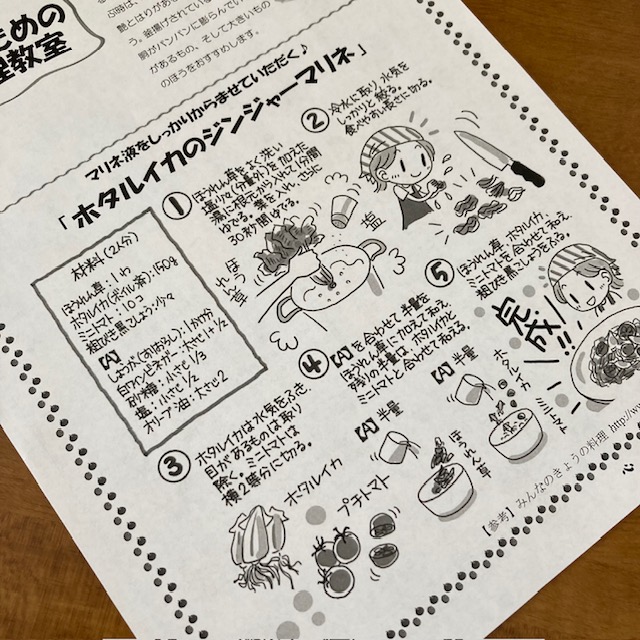 ための
理教室
ぶ時は、
艶とはりがあ
う。釜揚げされている
胴がパンパンに膨らんでい
があるもの、そして大きいもの
のほうをおすすめします。
マリネ液をしっかりからませていただく♪
「ホタルイカのジンジャーマリネ」
材料(2人分)
ほうれん草:1わ
ホタルイカ(ボイル済):150g
ミニトマト:10コ
粗びき黒こしょう:少々
【A】
しょうが(すりおろし):1かけ分
白ワインビネガー:大さじ1と1/2
砂糖:小さじ1/3
塩:小さじ1/3
オリーブ油:大さじ2
①
ほうれん草はよく洗い
塩少々(分量外)を加えた
熱湯に根元から入れて1分間
ゆでる。葉を入れ、さらに
30秒間ゆでる。
ほうれん草
塩
②
冷水に取り、水気を
しっかりと絞る。
食べやすい長さに切る。
③
ホタルイカは水気をふき
目があるものは取り
除く。ミニトマトは
横2等分に切る。
ホタルイカ
プチトマト
④
【A】を合わせて半量を
ほうれん草に加えて和え、
残りの半量は、ホタルイカと
ミニトマトと合わせて和える。
【A】半量
ほうれん草
【A】半量
ホタルイカ
ミニトマト
⑤
ほうれん草、ホタルイカ、
ミニトマトを合わせて和え、
粗びき黒こしょうをふる。
完成!!
【参考】みんなのきょうの料理 http://